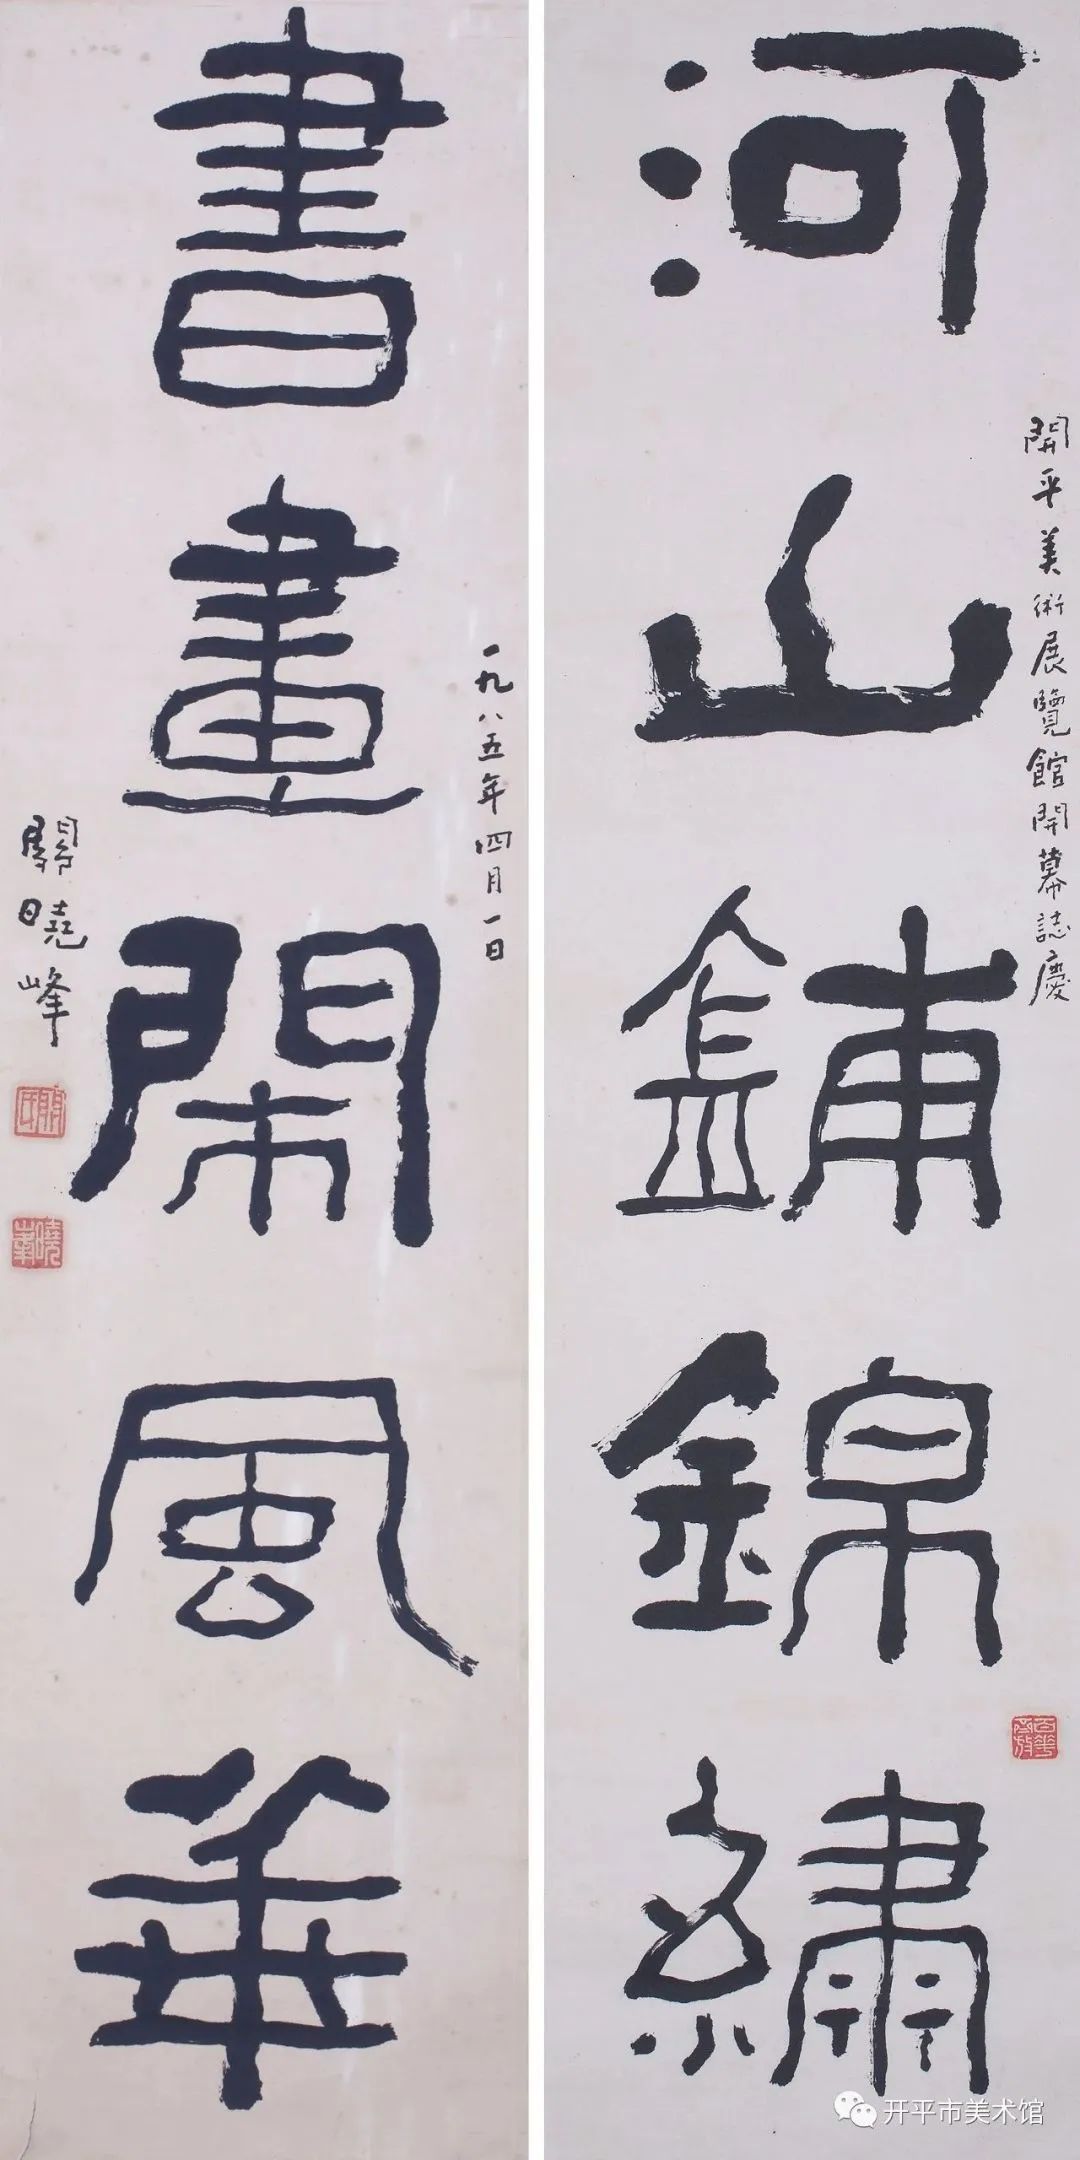 河山鋪錦繡
開平美術展覽館開幕誌慶
百花齊放
書畫閑風華
一九八五年四月一日
關曉峰
關氏
曉峯
开平市美术馆